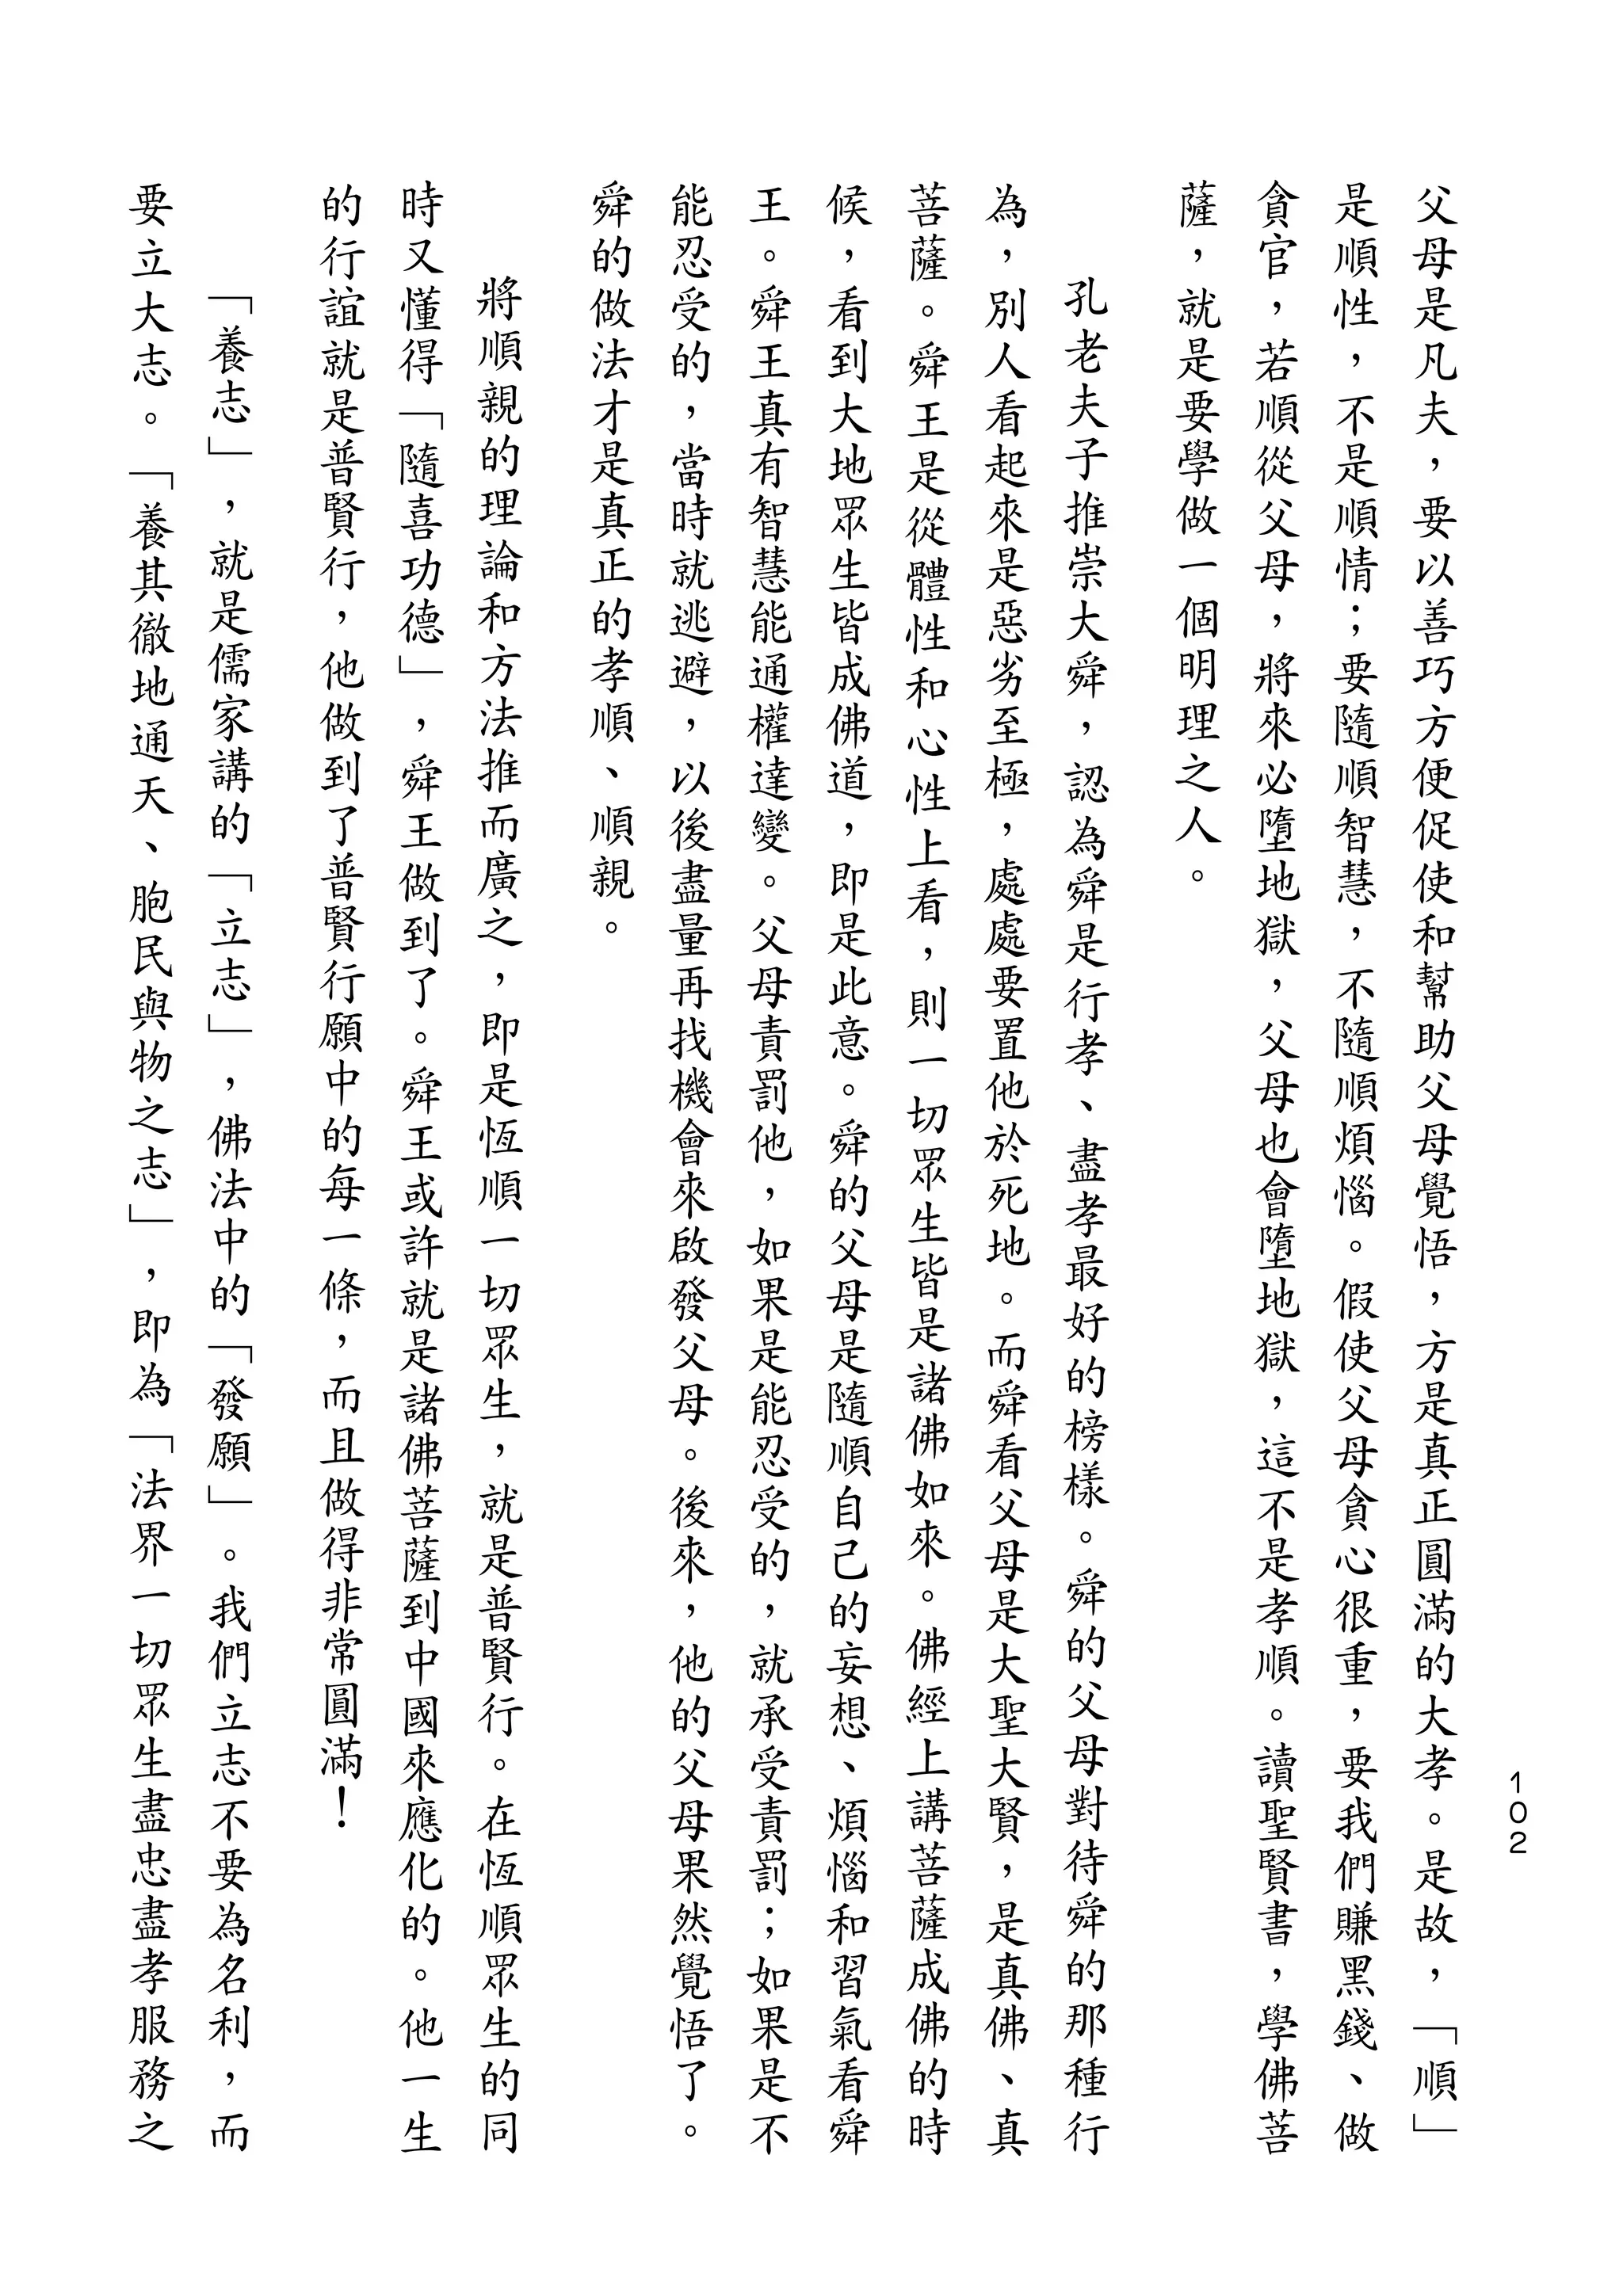 102
父母是凡夫，要以善巧方便促使和幫助父母覺悟，方是真正圓滿的大孝。是故，「順」
是順性，不是順情；要隨順智慧，不隨順煩惱。假使父母貪心很重，要我們賺黑錢、做
貪官，若順從父母，將來必墮地獄，父母也會墮地獄，這不是孝順。讀聖賢書，學佛菩
薩，就是要學做一個明理之人。
孔老夫子推崇大舜，認為舜是行孝、盡孝最好的榜樣。舜的父母對待舜的那種行
為，別人看起來是惡劣至極，處處要置他於死地。而舜看父母是大聖大賢，是真佛、真
菩薩。舜王是從體性和心性上看，則一切眾生皆是諸佛如來。佛經上講菩薩成佛的時
候，看到大地眾生皆成佛道，即是此意。舜的父母是隨順自己的妄想、煩惱和習氣看舜
王。舜王真有智慧能通權達變。父母責罰他，如果是能忍受的，就承受責罰；如果是不
能忍受的，當時就逃避，以後盡量再找機會來啟發父母。後來，他的父母果然覺悟了。
舜的做法才是真正的孝順、順親。
將順親的理論和方法推而廣之，即是恆順一切眾生，就是普賢行。在恆順眾生的同
時又懂得「隨喜功德」，舜王做到了。舜王或許就是諸佛菩薩到中國來應化的。他一生
的行誼就是普賢行，他做到了普賢行願中的每一條，而且做得非常圓滿！
「養志」，就是儒家講的「立志」，佛法中的「發願」。我們立志不要為名利，而
要立大志。「養其徹地通天、胞民與物之志」，即為「法界一切眾生盡忠盡孝服務之